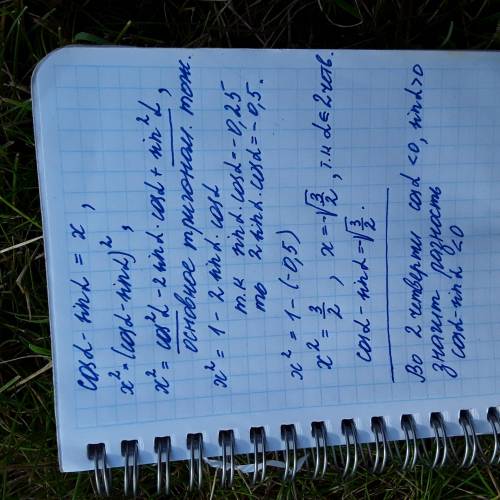 cosα - sinα = x ,
x² = (cosα - sinα)² ,
x² = cos²α - 2sinα · cosα + sin²α ,
основное тригоном. тож.
x² = 1 - 2 sinα cosα
т.к sinα · cosα = -0,25
то 2 sinα · cosα = -0,5.
x² = 1 - (-0,5)
x² = 3/2 , x = -√(3/2) , т.к α ∈ 2 четв.
cosα - sinα = -√(3/2).
Во 2 четверти cosα < 0, sinα > 0
значит разность
cosα - sinα < 0